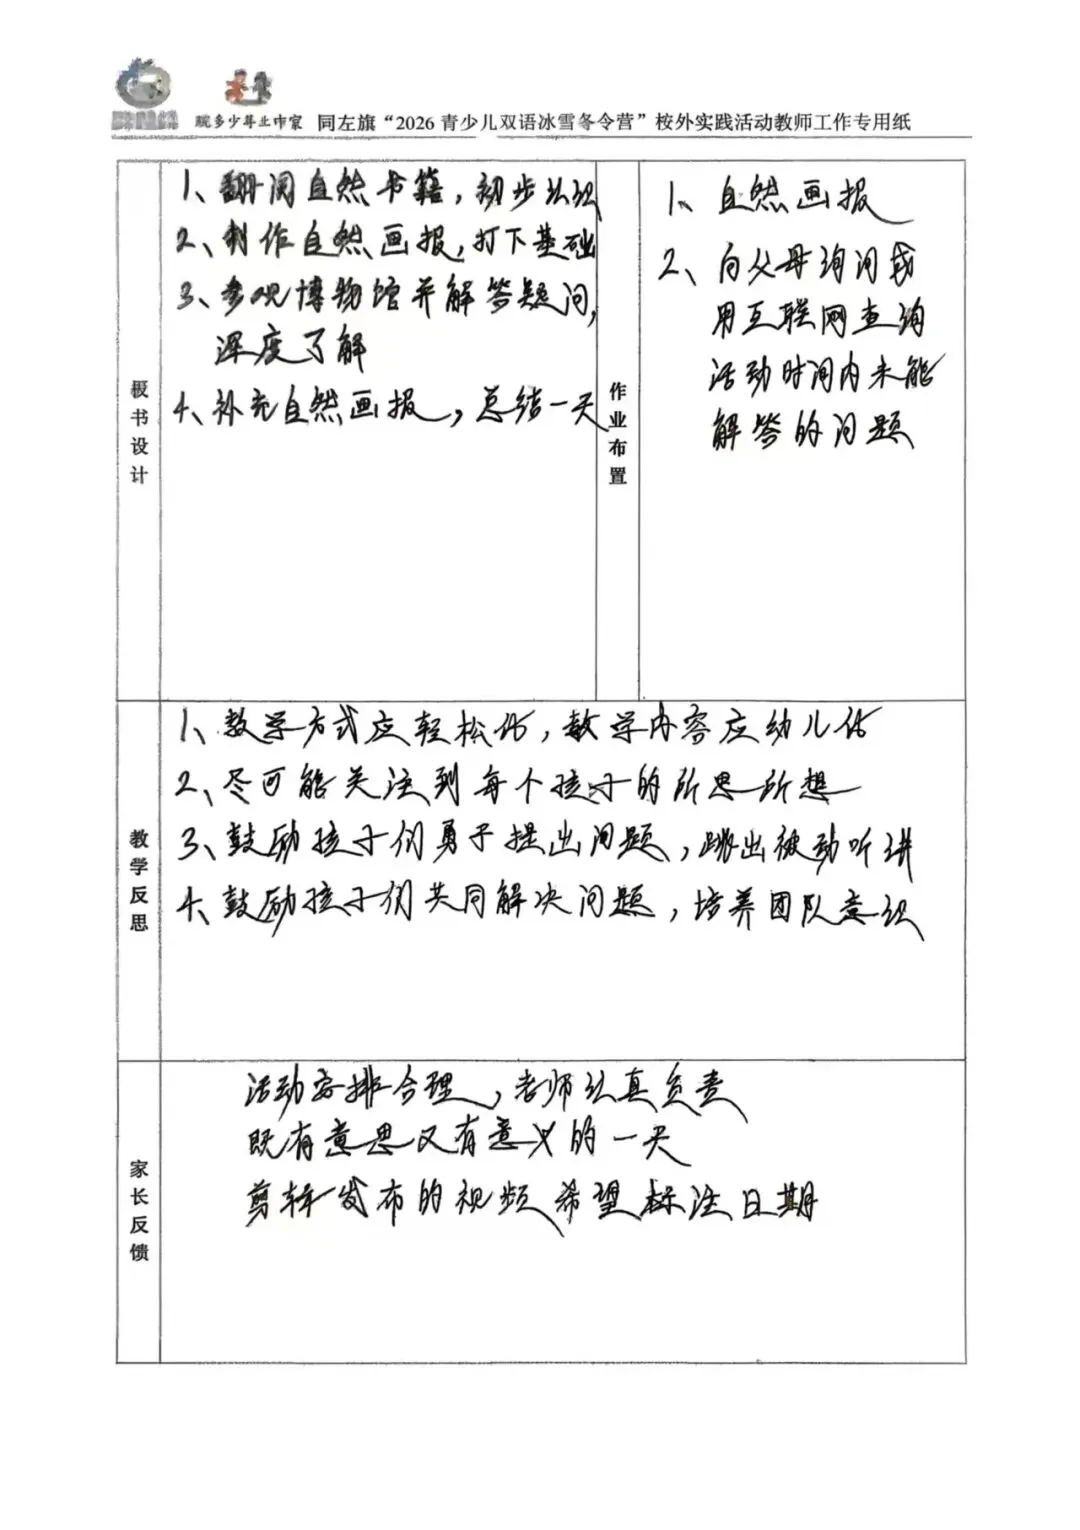 同左旗“2026青少儿双语冰雪冬令营”校外实践活动教师工作专用纸
板书设计
1、翻阅自然书籍，初步认识
2、制作自然画报，打下基础
3、参观博物馆并解答疑问，
深度了解
4、补充自然画报，总结一天
作业布置
1、自然画报
2、向父母询问或
用互联网查询
活动时间内未能
解答的问题
教学反思
1、教学方式应轻松化，教学内容应幼儿化
2、尽可能关注到每个孩子的所思所想
3、鼓励孩子们勇于提出问题，跳出被动听讲
4、鼓励孩子们共同解决问题，培养团队意识
家长反馈
活动安排合理，老师认真负责
既有意思又有意义的一天
剪辑发布的视频希望标注日期